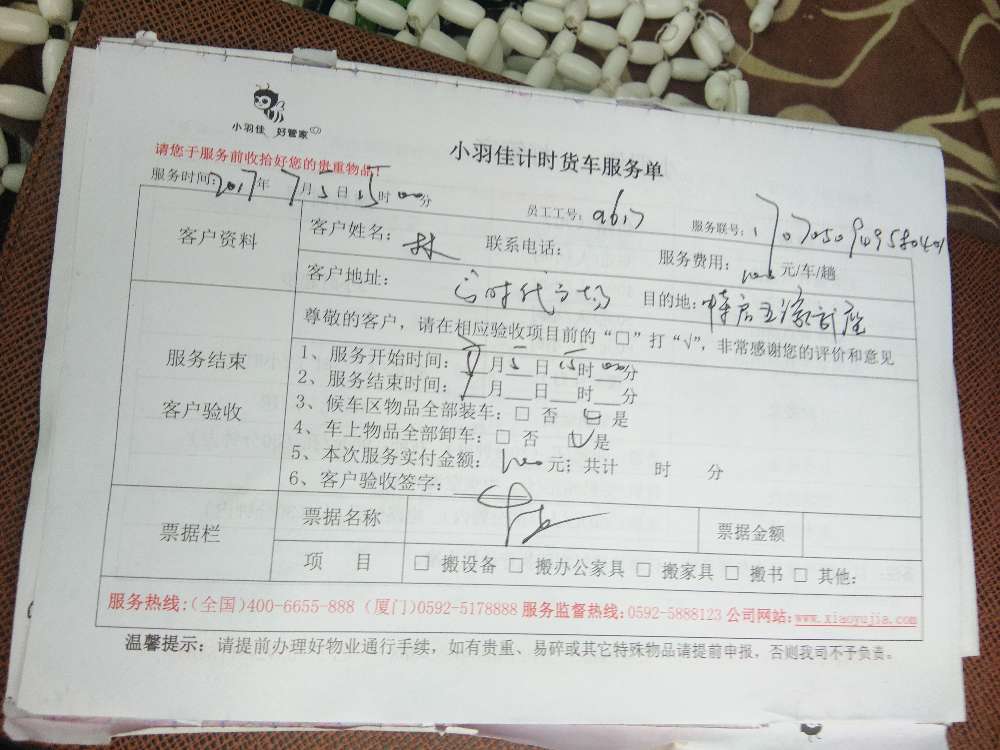 小羽佳 好管家
小羽佳计时货车服务单
请您于服务前收拾好您的贵重物品!
服务时间:2017年7月5日15时00分
员工工号:
服务联号:
客户资料
客户姓名:林 联系电话: 服务费用: 元/车/趟
客户地址: 时代广场 目的地:
服务结束
客户验收
尊敬的客户,请在相应验收项目前的“□”打“√”,非常感谢您的评价和意见
1、服务开始时间: 月5日15时00分
2、服务结束时间: 月 日 时 分
3、候车区物品全部装车:□ 否 □ 是
4、车上物品全部卸车:□ 否 □ 是
5、本次服务实付金额: 元;共计 时 分
6、客户验收签字:
票据栏
票据名称 票据金额
项 目 □ 搬设备 □ 搬办公家具 □ 搬家具 □ 搬书 □ 其他:
服务热线:(全国)400-6655-888 (厦门)0592-5178888 服务监督热线:0592-5888123 公司网站:www.xiaoyujia.com
温馨提示:请提前办理好物业通行手续,如有贵重、易碎或其它特殊物品请提前申报,否则我司不予负责。